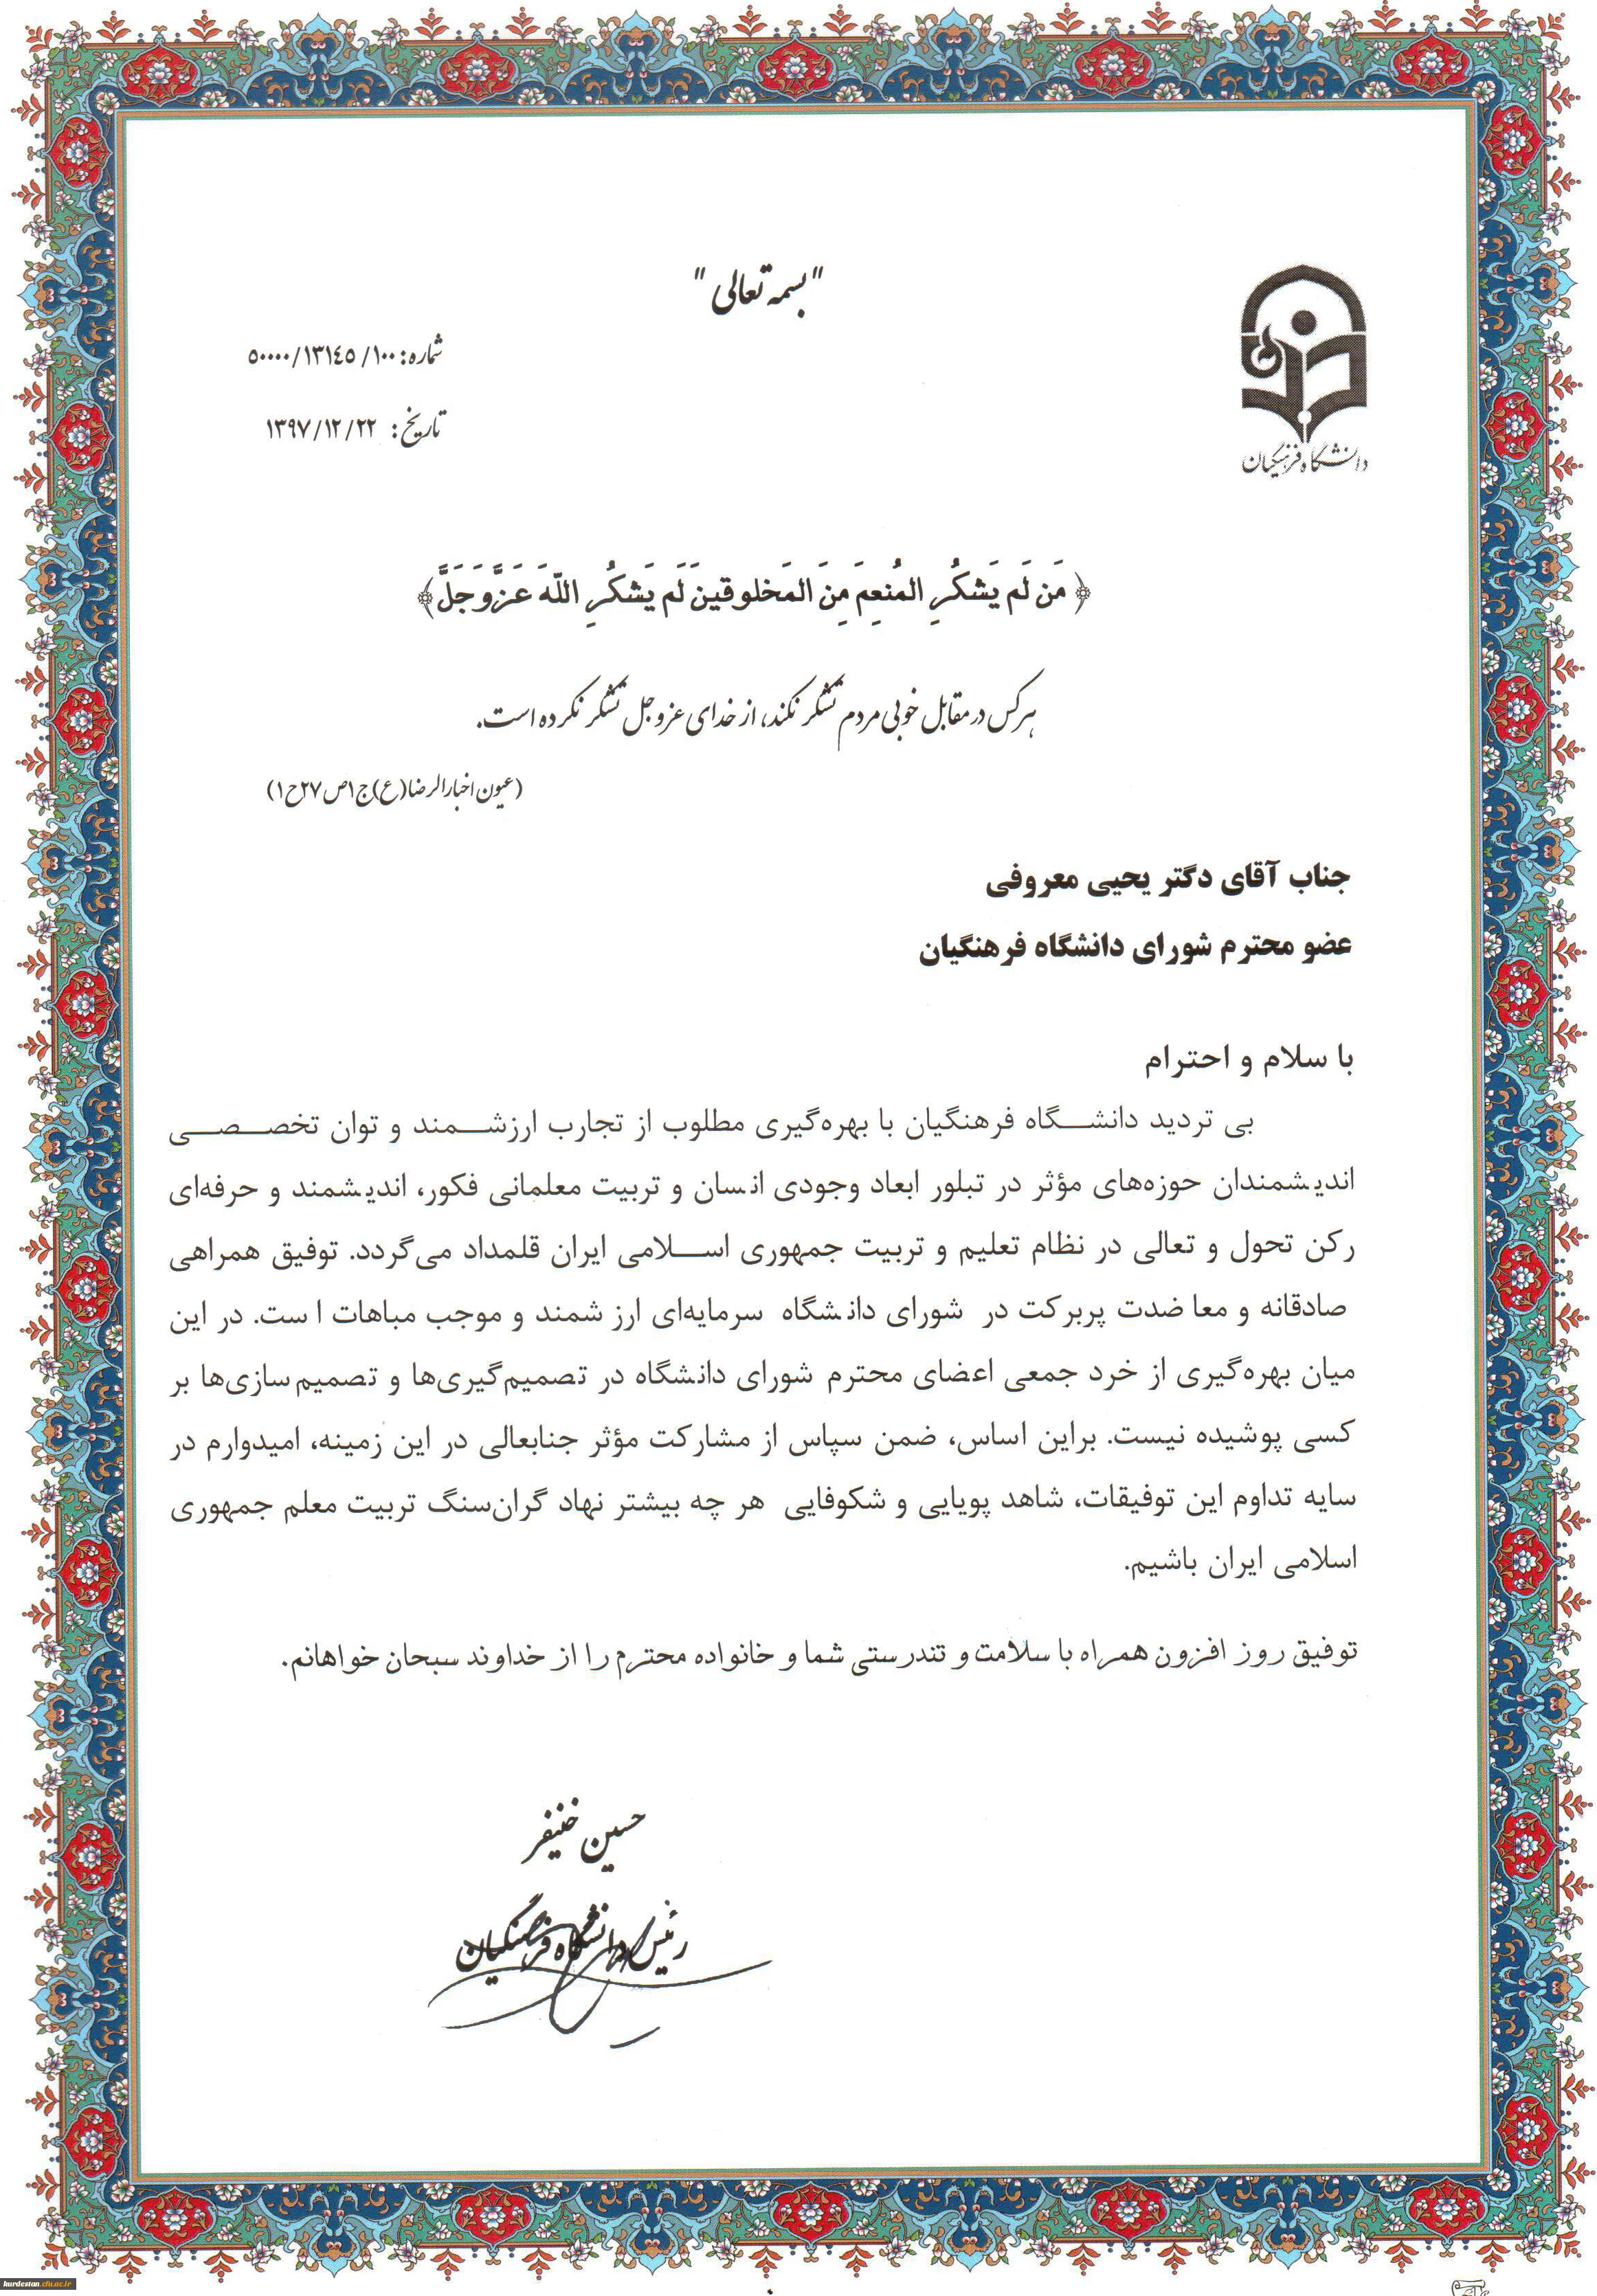 "بسمه تعالی"
شماره: ۵۰۰۰۰/۱۳۱٤۵/۱۰۰
تاریخ: ۱۳۹۷/۱۲/۲۲
دانشگاه فرهنگیان
﴿مَن لَم يَشكُرِ المُنعِمَ مِنَ المَخلوقينَ لَم يَشكُرِ اللّهَ عَزَّ وَ جَلَّ﴾
هرکس در مقابل خوبی مردم تشکر نکند، از خدای عزوجل تشکر نکرده است.
(عیون اخبارالرضا(ع)ج۱ص۲۷ح۱)
جناب آقای دکتر یحیی معروفی
عضو محترم شورای دانشگاه فرهنگیان
با سلام و احترام
بی تردید دانشگاه فرهنگیان با بهره‌گیری مطلوب از تجارب ارزشمند و توان تخصصی
اندیشمندان حوزه‌های مؤثر در تبلور ابعاد وجودی انسان و تربیت معلمانی فکور، اندیشمند و حرفه‌ای
رکن تحول و تعالی در نظام تعلیم و تربیت جمهوری اسلامی ایران قلمداد می‌گردد. توفیق همراهی
صادقانه و معاضدت پربرکت در شورای دانشگاه سرمایه‌ای ارزشمند و موجب مباهات است. در این
میان بهره‌گیری از خرد جمعی اعضای محترم شورای دانشگاه در تصمیم‌گیری‌ها و تصمیم‌سازی‌ها بر
کسی پوشیده نیست. براین اساس، ضمن سپاس از مشارکت مؤثر جنابعالی در این زمینه، امیدوارم در
سایه تداوم این توفیقات، شاهد پویایی و شکوفایی هر چه بیشتر نهاد گران‌سنگ تربیت معلم جمهوری
اسلامی ایران باشیم.
توفیق روز افزون همراه با سلامت و تندرستی شما و خانواده محترم را از خداوند سبحان خواهانم.
حسین خنیفر
رئیس دانشگاه فرهنگیان
kurdestan.cfu.ac.ir